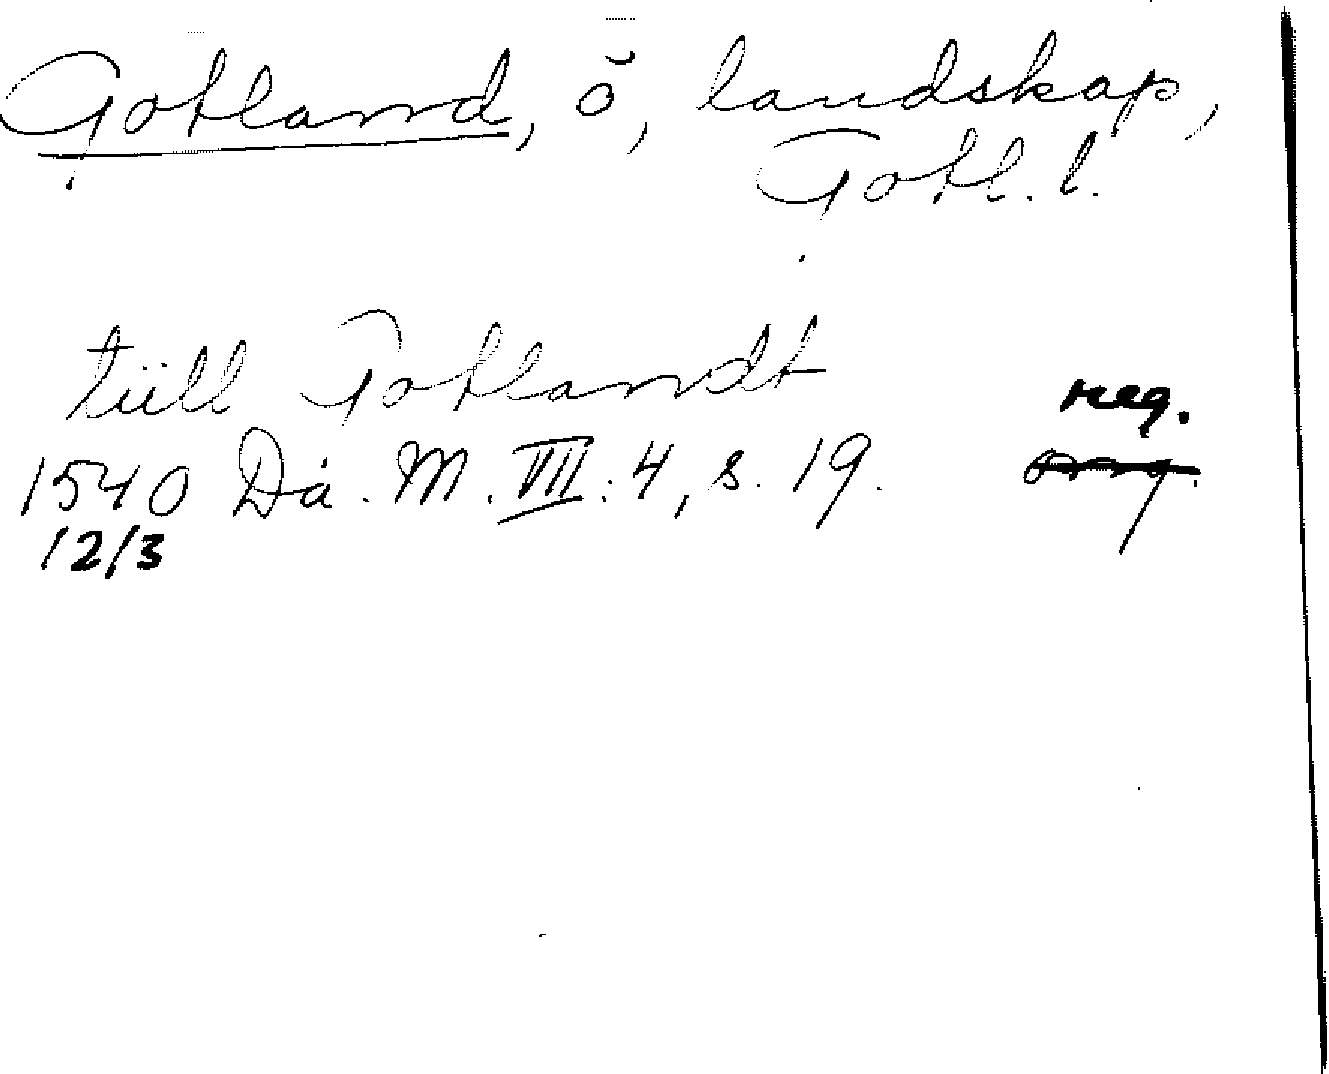 Gotland, ö, landskap,
Gotl. l.
tiill Gotlandt
reg.
1540 Da. M. VII:4, s. 19. orig.
12/3